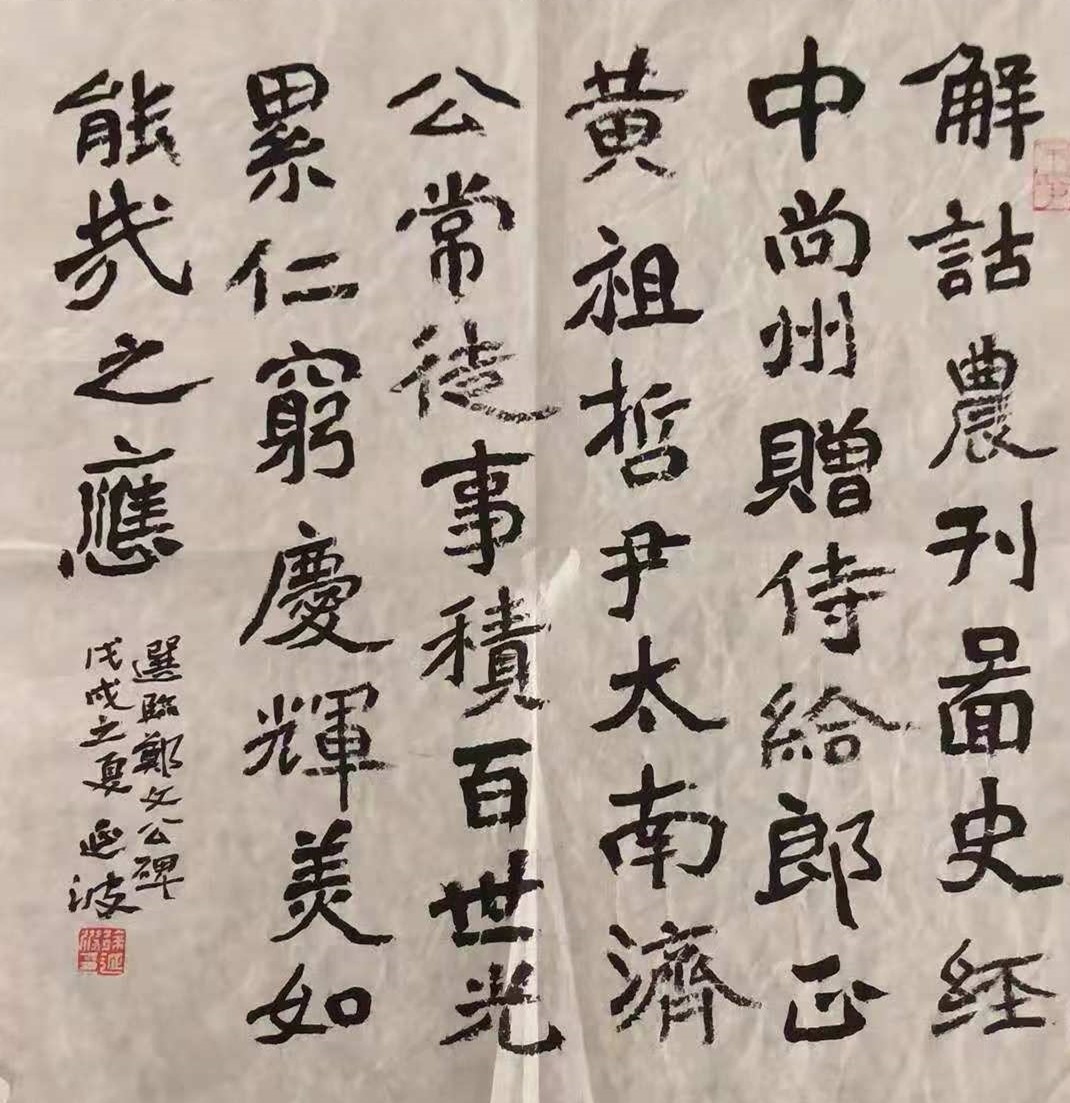 解詁農刊啚史経
中尚州贈侍給郎正
黃祖哲尹太南濟
公常徒事積百世光
累仁窮慶輝美如
能㢤之應
選臨鄭文公碑
戊戌之夏 延波